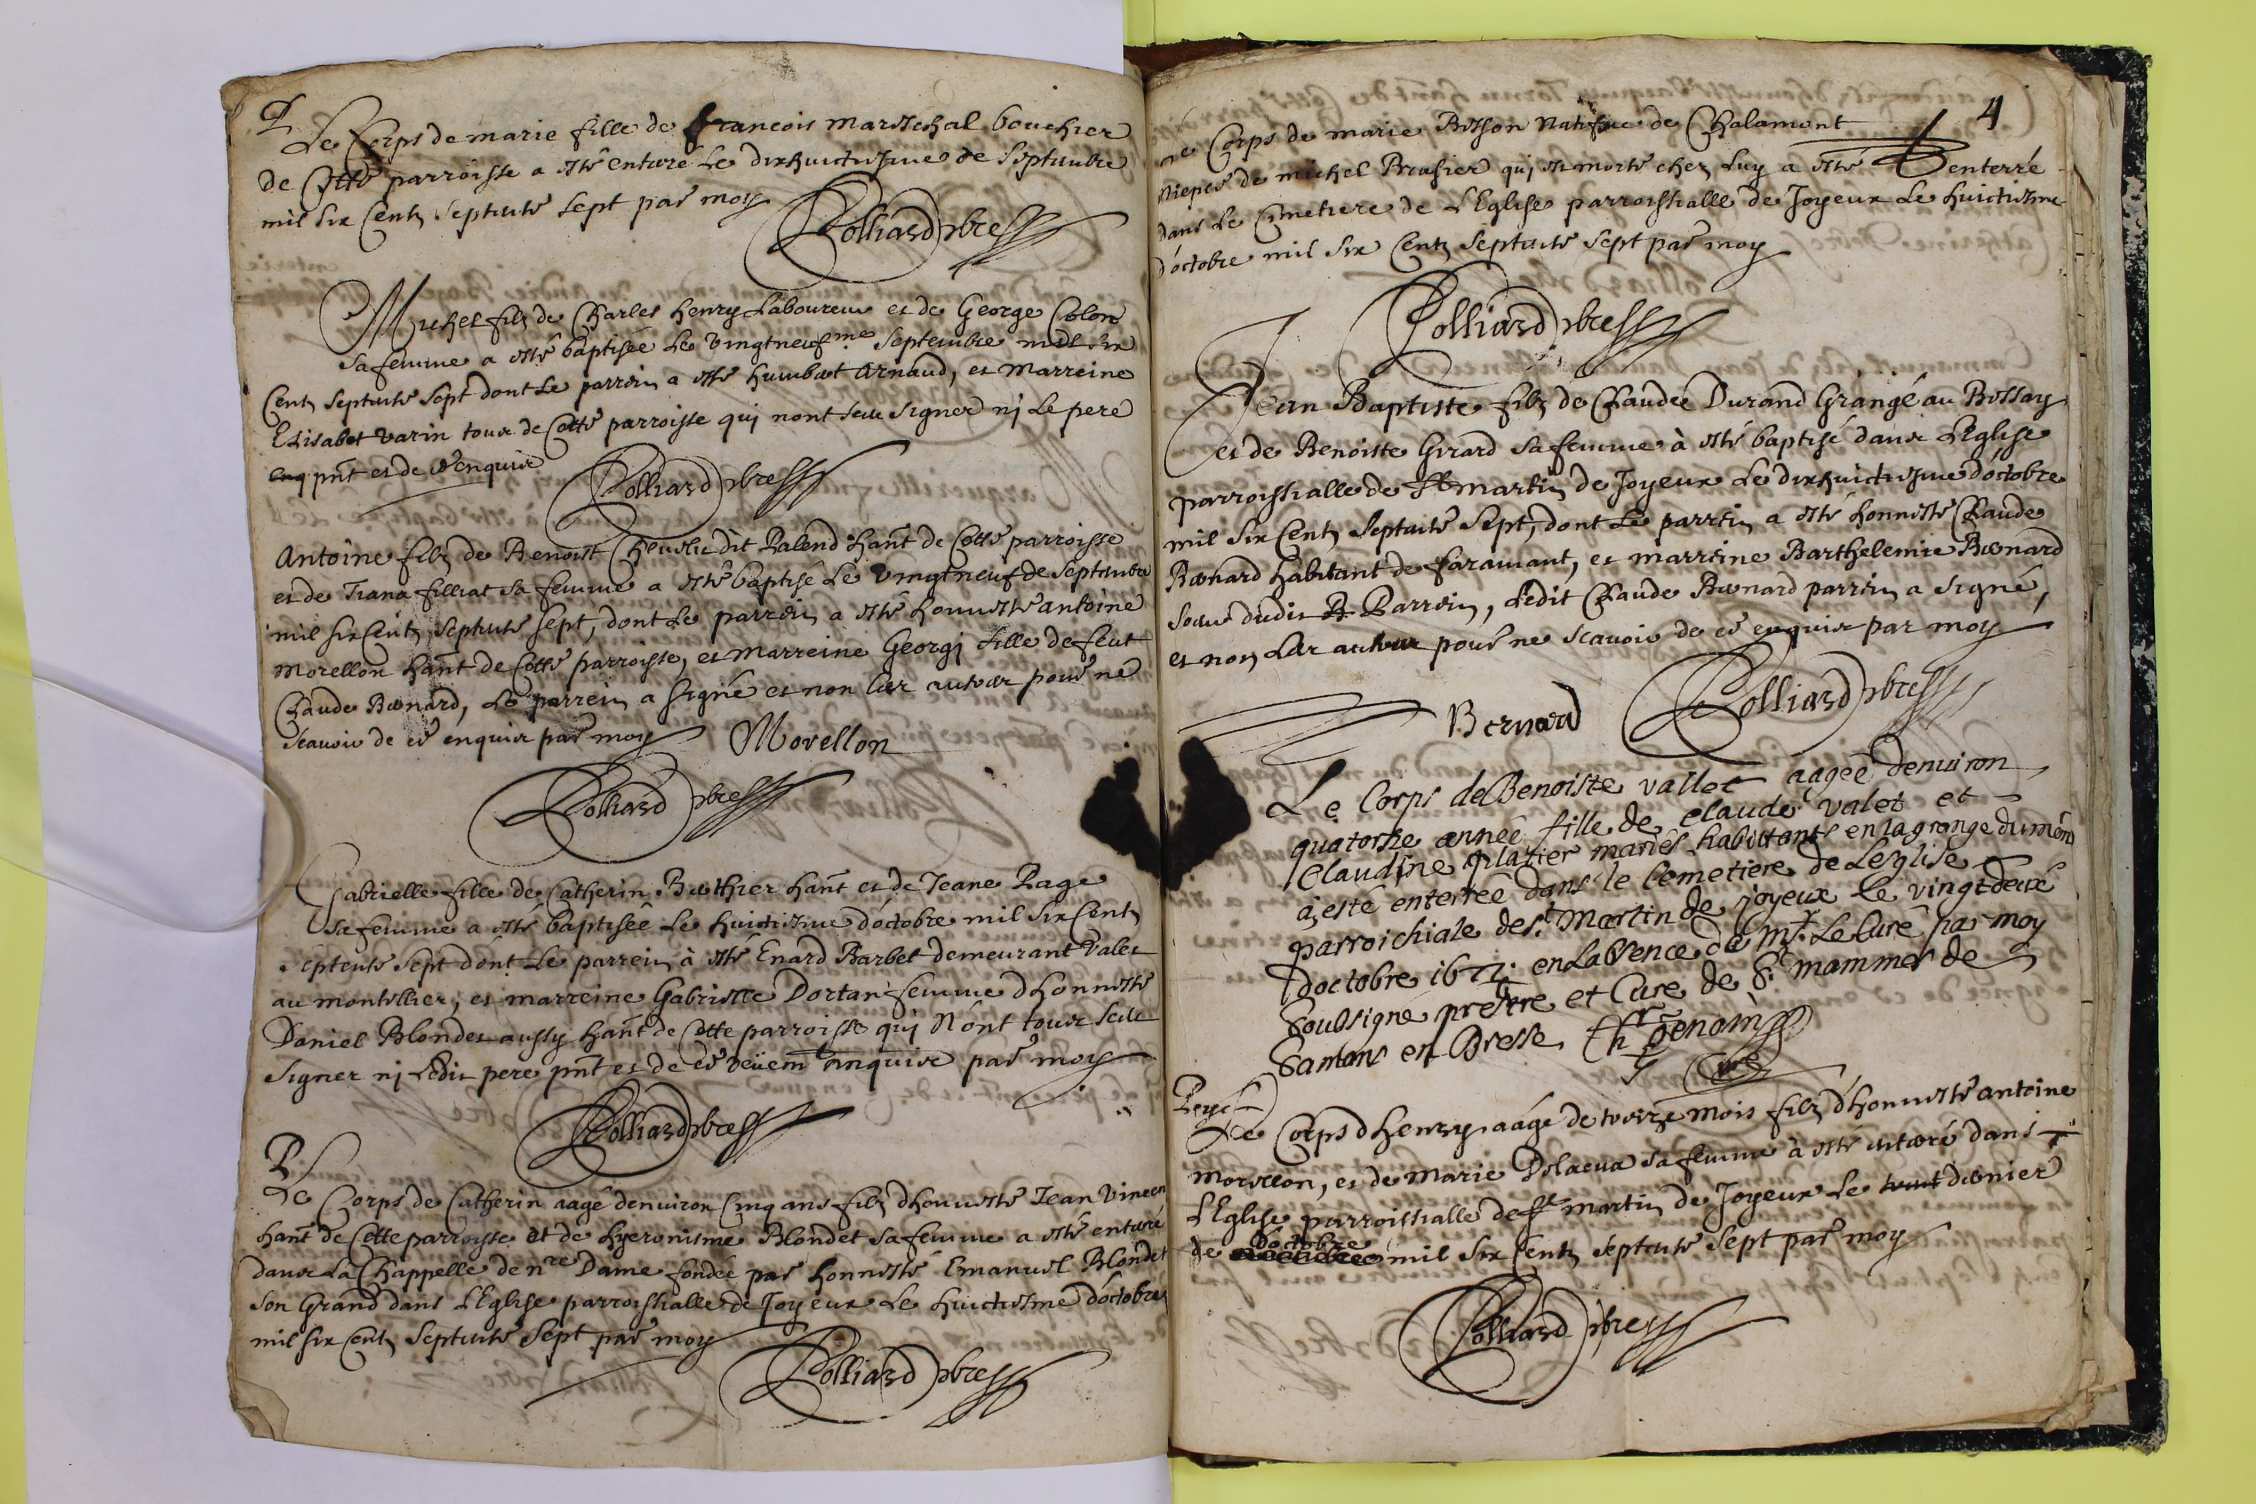 P
Le Corps de marie fille de francois mareschal bouchier
de Cette parroisse a esté enterré Le dixhuictiesme de Septembre
mil six Cents septante sept par moy
Polliard pbre
Michel filz de Charles henry Laboureur et de George Colon
sa femme a esté baptisée Le vingtneufme Septembre mil six
Cents septante sept dont Le parrein a esté humbert Arnaud, et marreine
Elisabet varin tous de Cette parroisse qui nont sceu signer nj Le pere
pnt et de ce enquis
Polliard pbre
Antoine filz de Benoist dit Ralend hant de Cette parroisse
et de Tiana filliat sa femme a esté baptisé Le vingtneuf de Septembre
mil six Cents septante sept, dont Le parrein a esté honneste antoine
Morellon hant de Cette parroisse, et marreine Georgj fille de feut
Claude Bernard, Le parrein a signé et non Les autres pour ne
scavoir de ce enquis par moy Morellon
Polliard pbre
Gabrielle fille de Catherin Berthier hant et de Jeane Page
sa femme a esté baptisée Le huictiesme doctobre mil six Cents
septante sept dont Le parrein à esté Enard Barbet demeurant valet
au montellier, et marreine Gabrielle Dortan femme dhonneste
Daniel Blondet aussy hant de Cette parroisse qui Nont tous sceu
signer nj Ledit pere pnt et de ce enquis par moy
Polliard pbre
P
Le Corps de Catherin aagé denuiron Cinq ans filz dhonneste Jean vincen
hant de Cette parroisse et de hyeronisme Blondet sa femme a esté enterré
dans La Chappelle de nre Dame fondée par honneste Emanuel Blondet
son Grand dans LEglise parroissialle de Joyeux Le huictiesme doctobre
mil six Cents septante sept par moy
Polliard pbre
4
Le Corps de marie Bosson natifue de Chalamont
niepce de michel Brasier quj est morte chez Luy a esté enterré
dans Le Cimetiere de LEglise parroissialle de Joyeux Le huictiesme
doctobre mil six Cents septante sept par moy
Polliard pbre
Jean Baptiste filz de Claude Durand Grangé au Bossay
et de Benoiste Girard sa femme à esté baptisé dans LEglise
parroissialle de St martin de Joyeux Le dixhuictiesme doctobre
mil six Cents septante sept, dont Le parrein a esté honneste Claude
Bernard habitant de faramant, et marreine Barthelemie Bernard
soeur dudit Parrein, Ledit Claude Bernard parrein a signé,
et non Les autres pour ne scavoir de ce enquis par moy
Bernard Polliard pbre
Le Corps de Benoiste vallet aagée denuiron
quatorse année fille de claude valet et
Claudine platier mariés habittants en la grange
à esté enterrée dans le Cemetiere de Leglise
parroichiale de St Martin de joyeux Le vingt deux
doctobre 1677 en Labsence de Mr Le Curé par moy
soubsigné prestre et Curé de St mammes de
santans en Bresse
Le Corps dhenry aagé de treize mois filz dhonneste antoine
Morellon, et de marie Delaeua sa femme à esté enterré dans
LEglise parroissialle de St martin de Joyeux Le dernier
de doctobre mil six Cents septante sept par moy
Polliard pbre